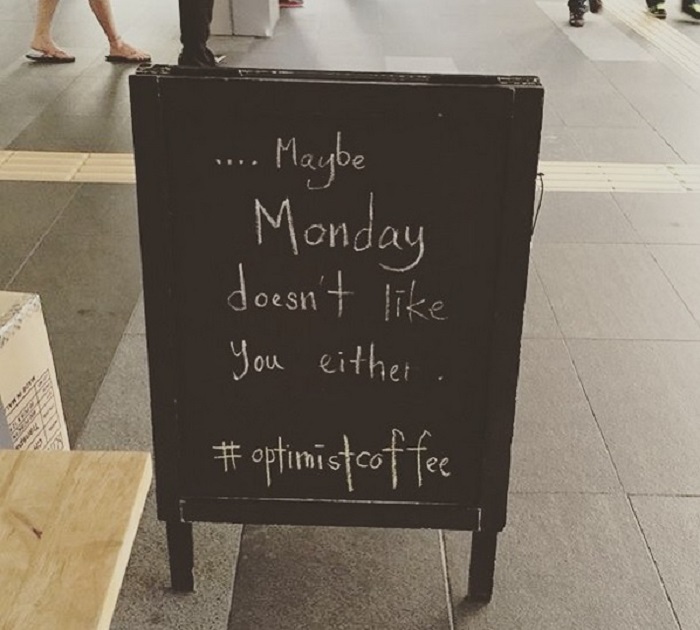 .... Maybe
Monday
doesn't like
you either.
#optimistcoffee